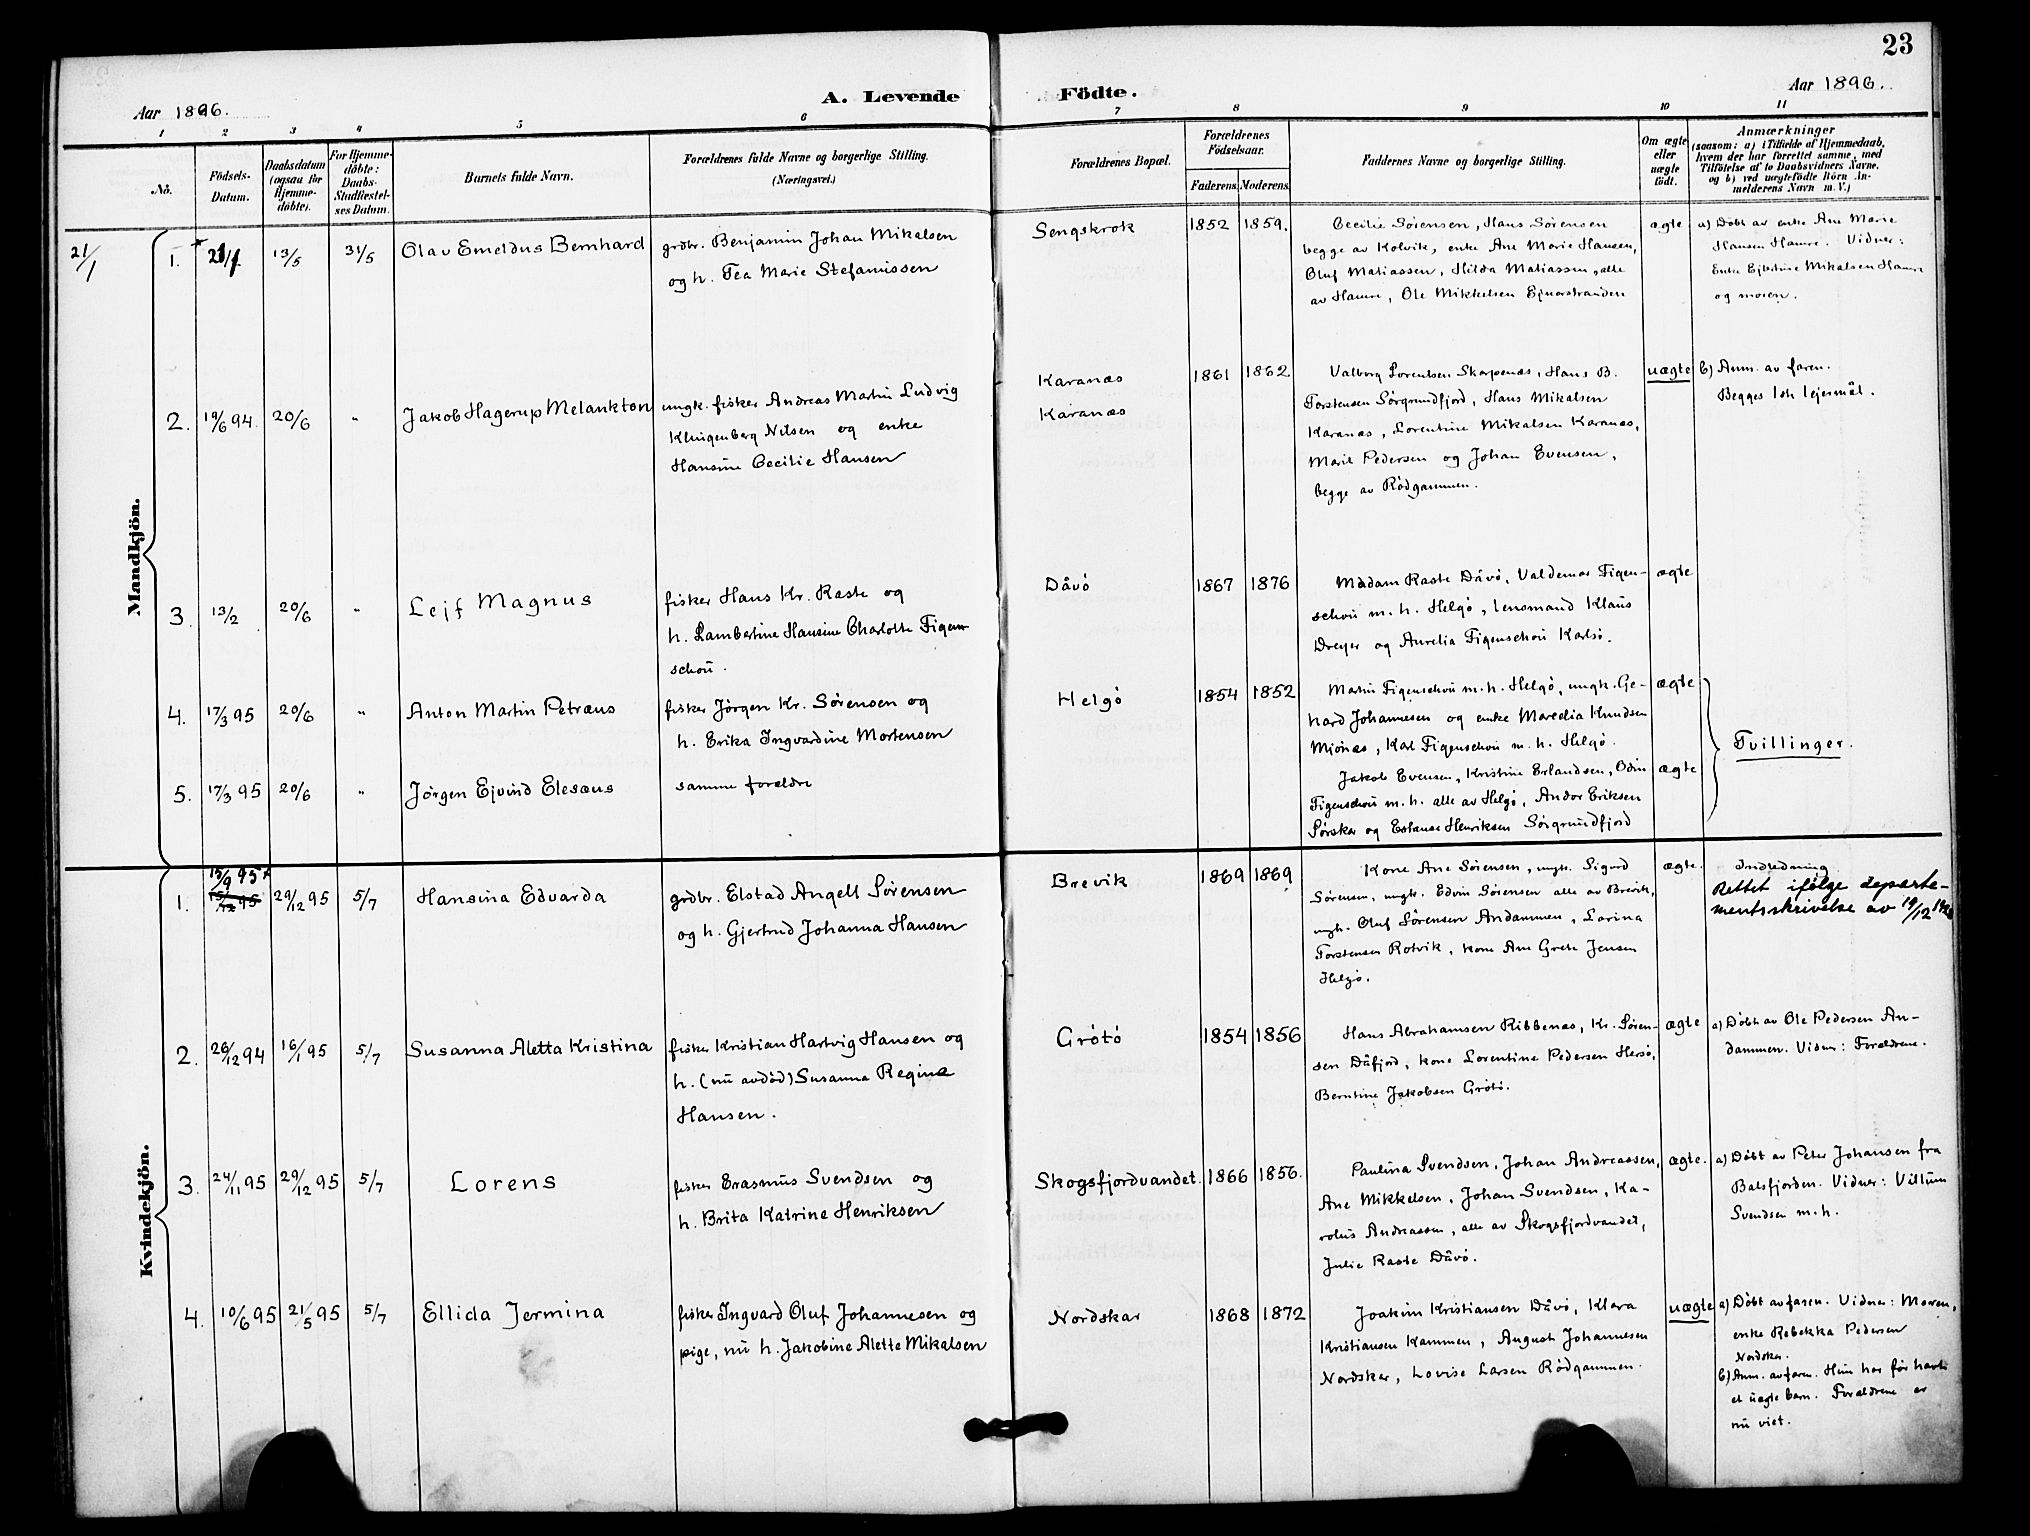 23
Aar 1896.
A. Levende
Födte.
Aar 1896.
1 2 3 4 5 6 7 8 9 10 11
No.
Födsels-
Datum.
Daabsdatum
(ogsaa for
Hjemme-
döbte).
For Hjemme-
döbte:
Daabs-
Stadfæstel-
ses Datum.
Barnets fulde Navn.
Forældrenes fulde Navne og borgerlige Stilling.
(Næringsvei.)
Forældrenes Bopæl.
Forældrenes
Födselsaar.
Faderens. Moderens.
Faddernes Navne og borgerlige Stilling.
Om ægte
eller
uægte
födt.
Anmærkninger
(saasom: a) i Tilfælde af Hjemmedaab,
hvem der har forrettet samme, med
Tilföielse af to Daabsvidners Navne,
og b) ved uægtefödte Börn An-
melderens Navn m. V.)
Mandkjön.
21/1
1. 21/1 13/5 31/5 Olav Emeldus Bernhard
grdbr. Benjamin Johan Mikalsen
og h. Tea Marie Stefanussen
Sengskrok 1852 1859.
Cecilie Sørensen, Hans Sørensen
begge av Kolvik, enke Ane Marie Hansen,
Oluf Matiassen, Hilda Matiassen, alle
av Hamre, Ole Mikkelsen Ejnarstranden
ægte
a) Døbt av enke Ane Marie
Hansen Hamre. Vidner:
Enke Ejbertine Mikalsen Hamre
og moren.
2. 19/6 94. 20/6 " Jakob Hagerup Melankton
ungk. fisker Andreas Martin Ludvig
Klingenberg Nilsen og enke
Hansine Cecilie Hansen
Karanæs
Karanæs
1861 1862
Valborg Lorentsen Skarpenæs, Hans B.
Torstensen Sørgrundfjord, Hans Mikalsen
Karanæs, Lorentine Mikalsen Karanæs,
Marit Pedersen og Johan Evensen,
begge av Rödgammen.
uægte
b) Anm. av faren.
Begges 1ste lejermål.
3. 13/2 20/6 " Lejf Magnus
fisker Hans Kr. Raste og
h. Lambertine Hansine Charlotte Figen-
schou.
Dåvö 1867 1876
Madam Raste Dåvö, Valdemar Figen-
schou m. h. Helgö, lensmand Klaus
Dreyer og Aurelia Figenschou Karlsö.
ægte
4. 17/3 95 20/6 " Anton Martin Petræus
fisker Jørgen Kr. Sörensen og
h. Erika Ingvardine Mortensen
Helgö 1854 1852
Martin Figenschou m. h. Helgö, ungk. Ge-
hard Johannesen og enke Maredia Knudsen
Mjönæs, Karl Figenschou m. h. Helgö.
ægte
Tvillinger.
5. 17/3 95 20/6 " Jørgen Ejvind Elesæus
samme forældre
Jakob Evensen, Kristine Erlandsen, Odin
Figenschou m. h. alle av Helgö, Andor Eriksen
Sørskar og Estanse Henriksen Sörgrundfjord
ægte
Kvindekjön.
1. 15/9 95 15/12 95 29/12 95 5/7 Hansina Edvarda
grdbr. Elstad Angell Sørensen
og h. Gjertrud Johanna Hansen
Brevik 1869 1869
Kone Ane Sørensen, ungk. Sigurd
Sørensen, ungk. Edvin Sørensen alle av Brevik,
ungk. Oluf Sørensen Andammen, Lorina
Torstensen Rotvik, kone Ane Grete Jensen
Helgö.
ægte.
Indledning
Rettet ifølge departe-
mentsskrivelse av 19/12
2. 26/12 94 16/1 95 5/7 Susanna Aletta Kristina
fisker Kristian Hartvig Hansen og
h. (nu avdöd) Susanna Regina
Hansen.
Grötö 1854 1856
Hans Abrahamsen Ribbenæs, Kr. Søren-
sen Dåfjord, kone Lorentine Pedersen Hersö,
Berntine Jakobsen Grötö.
ægte
a) Döbt av Ole Pedersen An-
dammen. Vidner: Forældrene.
3. 24/11 95 29/12 95 5/7 Lorens
fisker Erasmus Svendsen og
h. Brita Katrine Henriksen
Skogsfjordvandet. 1866 1856.
Paulina Svendsen, Johan Andreassen,
Ane Mikkelsen, Johan Svendsen, Ka-
rolus Andreassen, alle av Skogsfjordvandet,
Julie Raste Dåvö.
ægte.
a) Döbt av Peter Johansen fra
Balsfjorden. Vidner: Villum
Svendsen m. h.
4. 10/6 95 21/5 95 5/7 Ellida Jermina
fisker Ingvard Oluf Johannesen og
pige, nu h. Jakobine Alette Mikalsen
Nordskar 1868 1872
Joakim Kristiansen Dåvö, Klara
Kristiansen Kammen, August Johannesen
Nordskar, Lovise Larsen Rödgammen.
uægte
a) Döbt av faren. Vidner: Moren,
enke Rebekka Pedersen
Nordskar.
b) Anm. av faren. Hun har før havt
et uægte barn. Forældrene er
nu viet.